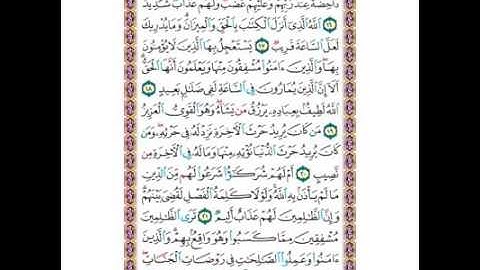 دَاحِضَةٌ عِندَ رَبِّهِمْ وَعَلَيْهِمْ غَضَبٌ وَلَهُمْ عَذَابٌ شَدِيدٌ
١٦ ٱللَّهُ ٱلَّذِىٓ أَنزَلَ ٱلْكِتَٰبَ بِٱلْحَقِّ وَٱلْمِيزَانَ وَمَا يُدْرِيكَ
لَعَلَّ ٱلسَّاعَةَ قَرِيبٌ ١٧ يَسْتَعْجِلُ بِهَا ٱلَّذِينَ لَا يُؤْمِنُونَ
بِهَا وَٱلَّذِينَ ءَامَنُوا۟ مُشْفِقُونَ مِنْهَا وَيَعْلَمُونَ أَنَّهَا ٱلْحَقُّ
أَلَآ إِنَّ ٱلَّذِينَ يُمَارُونَ فِى ٱلسَّاعَةِ لَفِى ضَلَٰلٍ بَعِيدٍ ١٨
ٱللَّهُ لَطِيفٌۢ بِعِبَادِهِۦ يَرْزُقُ مَن يَشَآءُ وَهُوَ ٱلْقَوِىُّ ٱلْعَزِيزُ
١٩ مَن كَانَ يُرِيدُ حَرْثَ ٱلْءَاخِرَةِ نَزِدْ لَهُۥ فِى حَرْثِهِۦ وَمَن
كَانَ يُرِيدُ حَرْثَ ٱلدُّنْيَا نُؤْتِهِۦ مِنْهَا وَمَا لَهُۥ فِى ٱلْءَاخِرَةِ مِن
نَّصِيبٍ ٢٠ أَمْ لَهُمْ شُرَكَٰٓؤُا۟ شَرَعُوا۟ لَهُم مِّنَ ٱلدِّينِ
مَا لَمْ يَأْذَنۢ بِهِ ٱللَّهُ وَلَوْلَا كَلِمَةُ ٱلْفَصْلِ لَقُضِىَ بَيْنَهُمْ
وَإِنَّ ٱلظَّٰلِمِينَ لَهُمْ عَذَابٌ أَلِيمٌ ٢١ تَرَى ٱلظَّٰلِمِينَ
مُشْفِقِينَ مِمَّا كَسَبُوا۟ وَهُوَ وَاقِعٌۢ بِهِمْ وَٱلَّذِينَ
ءَامَنُوا۟ وَعَمِلُوا۟ ٱلصَّٰلِحَٰتِ فِى رَوْضَاتِ ٱلْجَنَّاتِ